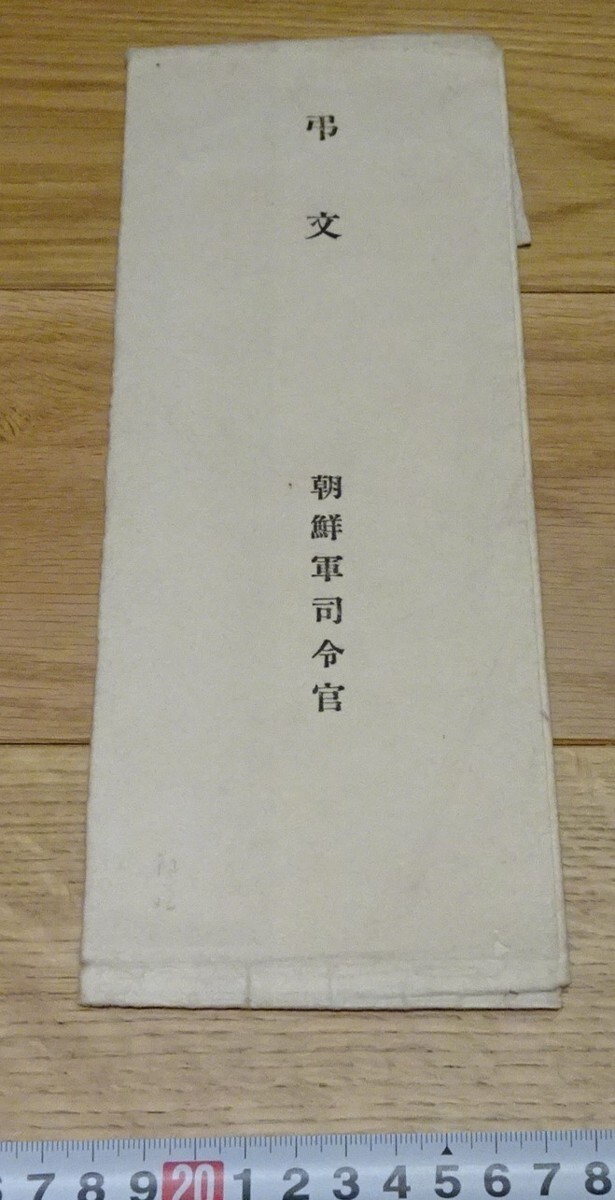 弔文
朝鮮軍司令官
7 8 9 20 1 2 3 4 5 6 7 8